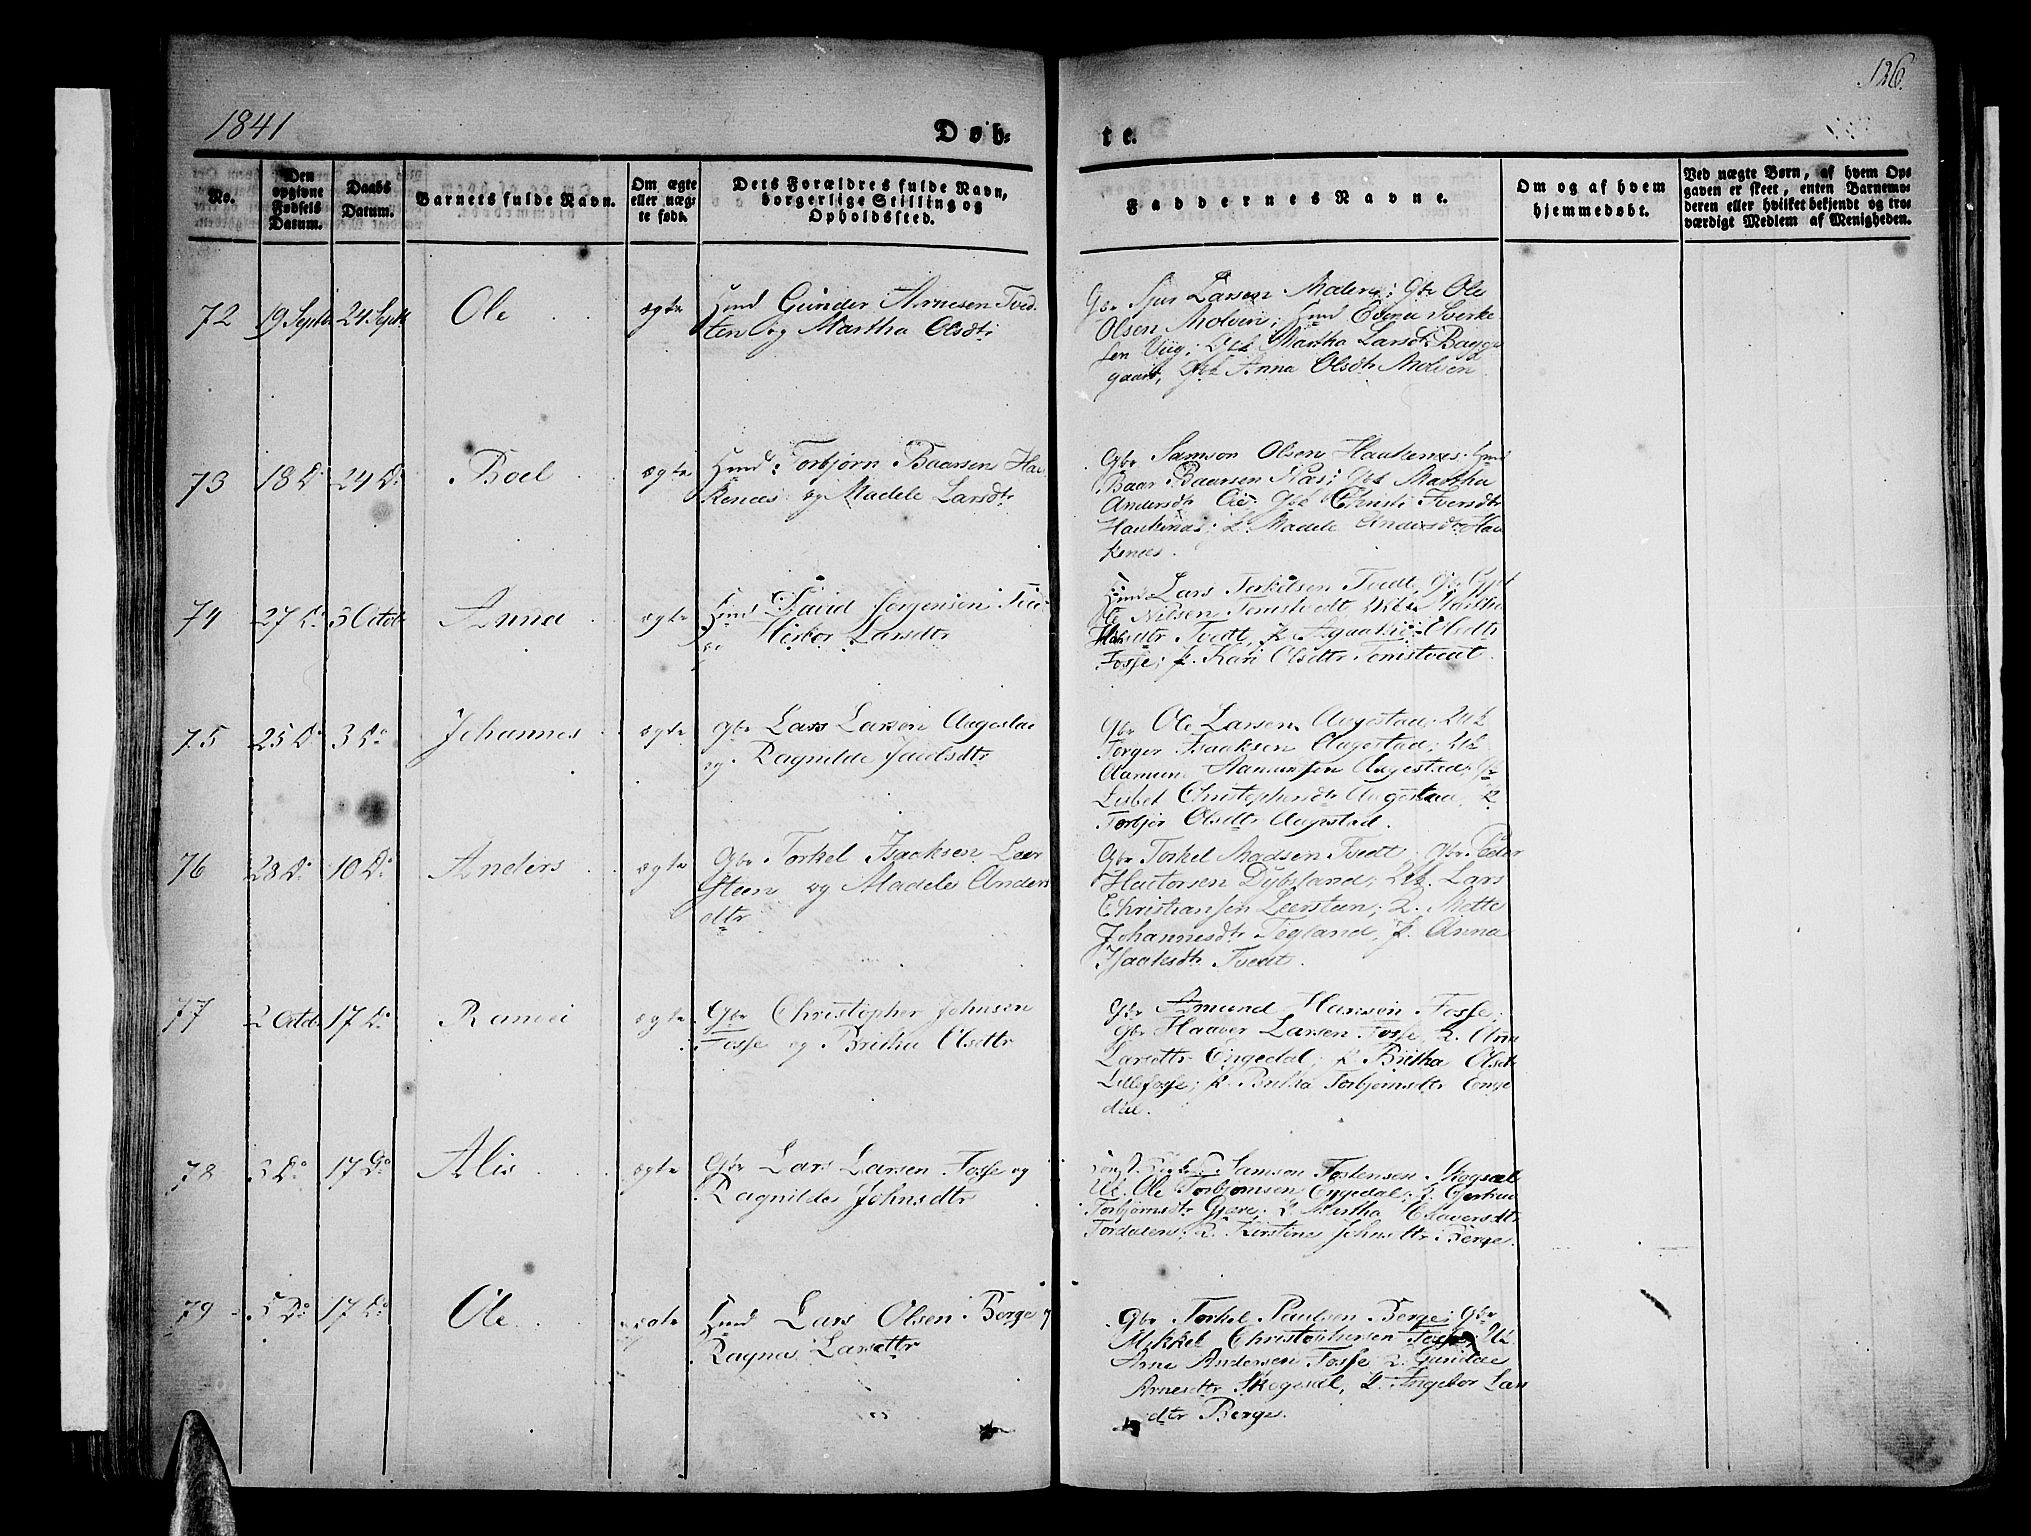 126.
1841
Døb-
te.
No.
Den opgivne Fødsels Datum.
Daabs Datum.
Barnets fulde Navn.
Om ægte eller nægte født.
Dets Forældres fulde Navn, borgerlige Stilling og Opholdssted.
Faddernes Navne.
Om og af hvem hjemmedøbt.
Ved nægte Børn, af hvem Opgaven er skeet, enten Barnemoderen eller hvilket bekjendt og troværdigt Medlem af Menigheden.
72 19 Septr 24 Septr Ole ægte Hmd Gunder Arnesen Tved-
ten og Martha Olsdtr
Gbr Sjur Larsen Molven; Gbr Ole
Olsen Molven; Hmd
sen Viig; Gbk Martha Larsdtr Bagge
gaard, Gbk Anna Olsdtr Molven
73 18 Do 24 Do Boel ægte Hmd Torbjørn Baarsen Hau-
kenæs og Madele Larsdtr
Gbr Samson Olsen Haukenæs; Hmd
Baar Baarsen Næs; Gbk Martha
Andersdtr Gbk Christi Iversdtr
Haukenæs; P. Madele Andersdtr Hau
kenæs.
74 27 Do 3 Octobr Anna ægte Hmd David Jørgensen
og Larsdtr
Hmd Lars Torkelsen Tvedt, Gbr
Ole Nilsen Tomstvedt Martha
Tvedt, P. Olsdtr
Fosse; P. Kari Olsdtr Tomstvedt.
75 25 Do 3 Do Johannes ægte Gbr Lars Larsen Augestad
og Ragnilde
Gbr Ole Larsen Augestad; Uk
Torger Isaaksen Augestad; Uk
Aamund Aamundsen Augestad;
Lisbet Christophersdtr Augestad, P.
Torbjør Olsdtr Augestad.
76 28 Do 10 Do Anders ægte Gbr Torkel Isaksen Leer
steen og Madele Anders
dtr
Gbr Torkel Madsen Tvedt, Gbr Peder
Hactorsen Dybsland; Uk. Lars
Christiansen Leersteen; P. Mette
Johannesdtr Tegland, P. Anna
Isaaksdtr Tvedt.
77 2 Octobr 17 Do ægte Gbr Christopher Johnsen
Fosse og Britha Olsdtr
Gbr Amund Hansen Fosse;
Gbr Haaver Larsen Fosse, P. Ann
Larsdtr Engedal; P. Britha Olsdtr
Lillefosse; P. Britha Torbjørnsdtr Enge
dal.
78 3 Do 17 Do Alis ægte Gbr Lars Larsen Fosse og
Ragnilde Johnsdtr
Samson Tostensen Skogsæl
Uk. Ole Torbjørnsen Engedal; P.
Torbjørnsdtr P. Martha Haaversdtr
Tordalen; P. Kirstine Johnsdtr Berge.
79 5 Do 17 Do Ole ægte Hmd Lars Olsen Berge og
Ragna Larsdtr
Gbr Torkel Paulsen Berge; Gbr
Mikkel Christophersen Fosse; Uk
Arne Andersen Fosse P. Gunilde
Arnesdtr Skogsæl, P. Ingebor Lars
dtr Berge.